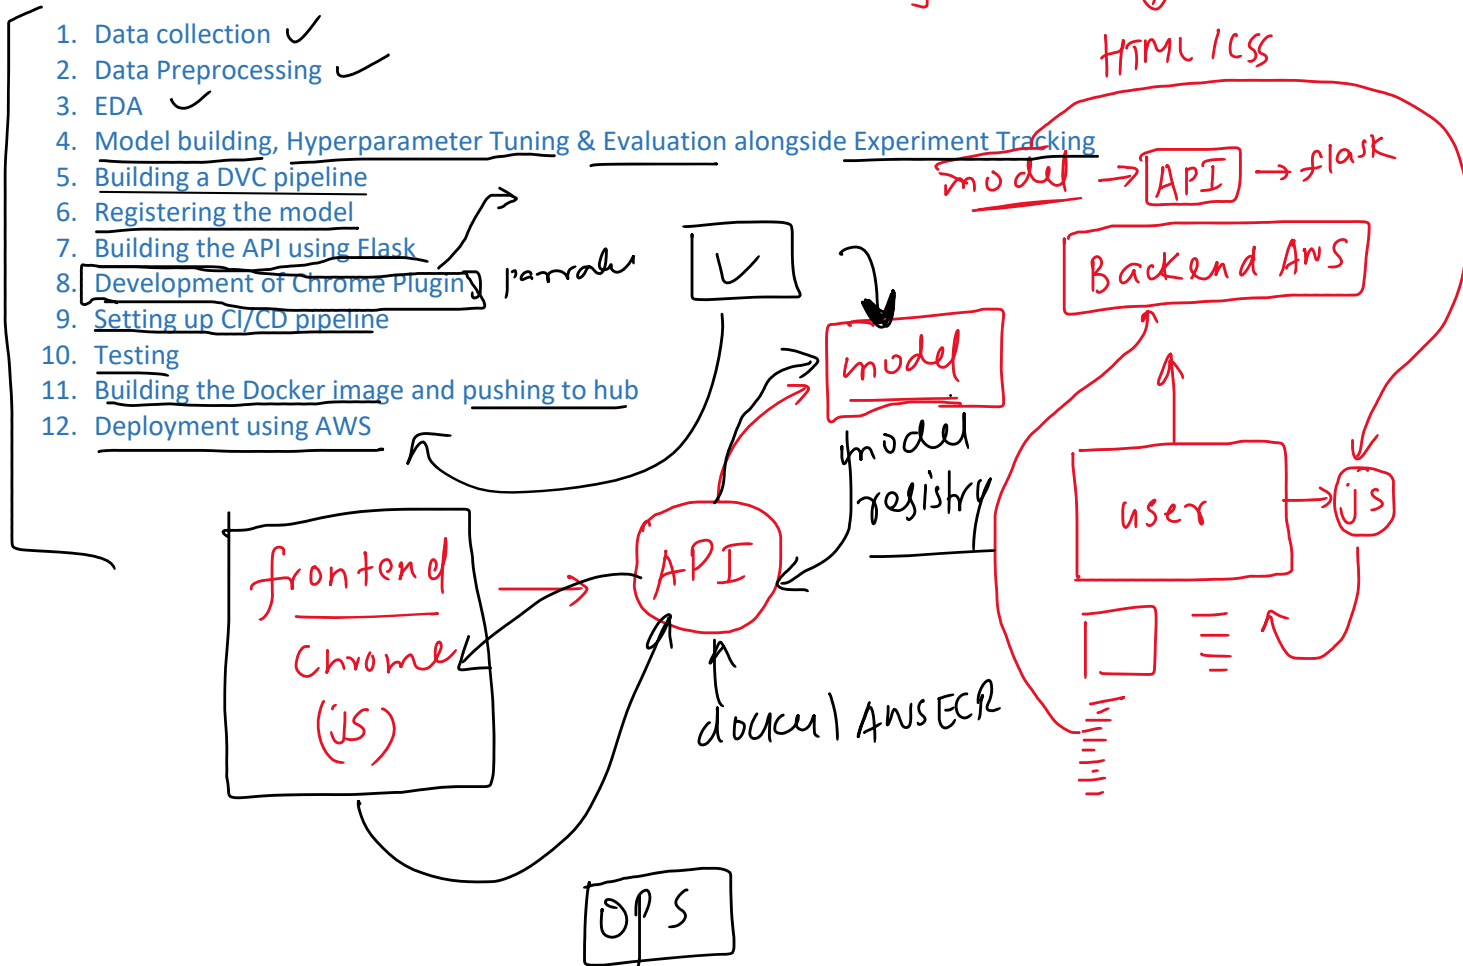 1. Data collection
2. Data Preprocessing
3. EDA
4. Model building, Hyperparameter Tuning & Evaluation alongside Experiment Tracking
5. Building a DVC pipeline
6. Registering the model
7. Building the API using Flask
8. Development of Chrome Plugin
9. Setting up CI/CD pipeline
10. Testing
11. Building the Docker image and pushing to hub
12. Deployment using AWS
HTML/CSS
model → API → flask
Backend AWS
model
model
registry
user
js
frontend
Chrome
(js)
API
AWS ECR
OPS